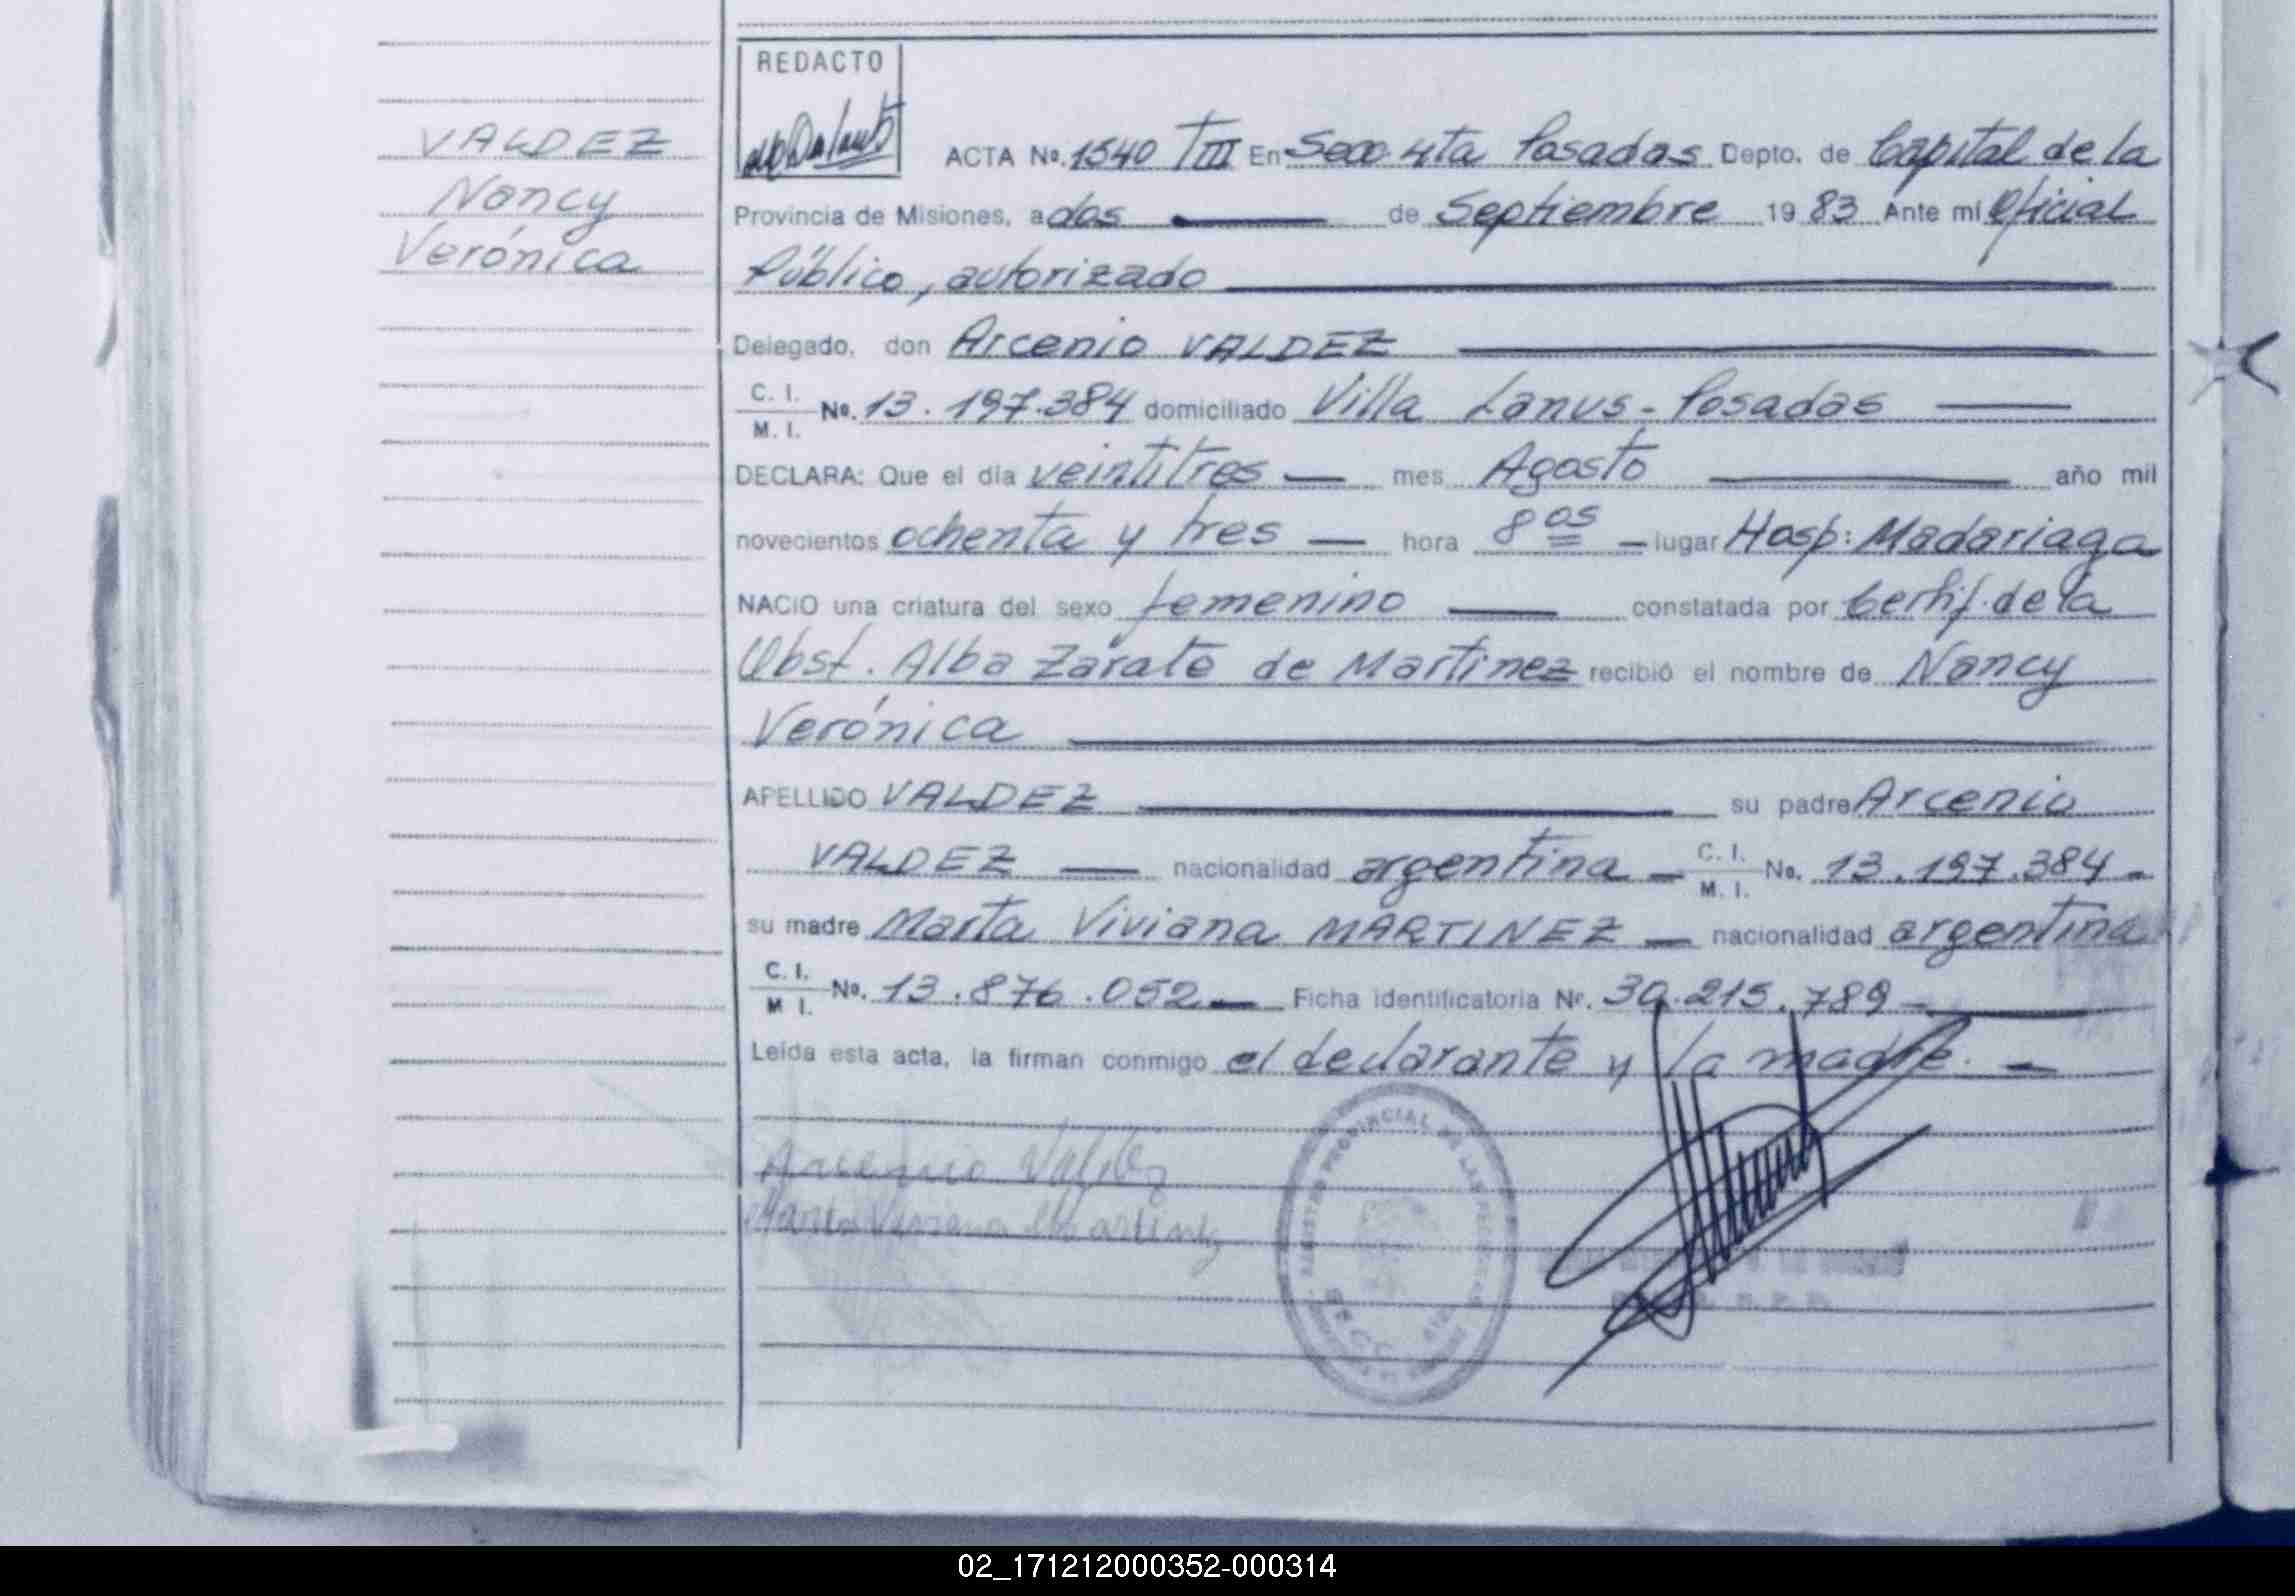 VALDEZ
Nancy
Verónica
REDACTO
ACTA No. 1540 TIII En Secc. 4ta Posadas Depto. de Capital de la
Provincia de Misiones, a dos de Septiembre 1983 Ante mi Oficial
Público, autorizado
Delegado, don Arcenio VALDEZ
C. I.
M. I. No. 13.197.384 domiciliado Villa Lanus - Posadas
DECLARA: Que el día veintitres mes Agosto año mil
novecientos ochenta y tres hora 8 05 lugar Hosp: Madariaga
NACIO una criatura del sexo femenino constatada por Certif. de la
Obst. Alba Zárate de Martinez recibió el nombre de Nancy
Verónica
APELLIDO VALDEZ su padre Arcenio
VALDEZ nacionalidad argentina C. I. M. I. No. 13.197.384
su madre Marta Viviana MARTINEZ nacionalidad argentina
C. I.
M I. No. 13.876.052 Ficha identificatoria Nr. 30.215.789
Leída esta acta, la firman conmigo el declarante y la madre.
Arcenio Valdez
Marta Viviana Martinez
REGISTRO PROVINCIAL DE LAS PERSONAS
02_171212000352-000314